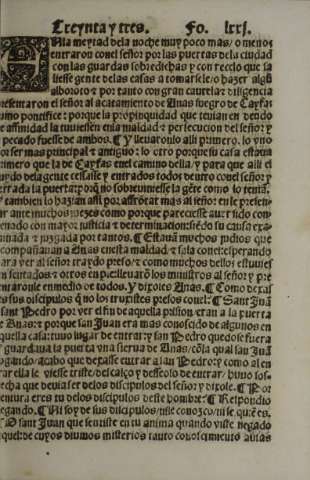 Treynta y tres. Fo. lxxj.
A la meytad dela noche muy poco mas / o menos
entraron conel señor / por las puertas dela ciudad
con las guardas sobredichas y con recelo que sa
liesse gente delas casas a tomarselo / o hazer algũ
alboroto z por tanto con gran cautela z diligencia
presentaron el señor al acatamiento de Anas suegro de Cayfas
pontifice : porque la propinquidad que tenian en deudo
de affinidad la tuuiessen enla maldad z persecucion del señor : y
el pecado fuesse de ambos. ¶ Y lleuaronlo alli primero. lo vno
por ser mas principal z antiguo : lo otro porque su casa estaua
primero que la de Cayfas enel camino della / y para que alli el
ruydo dela gente cessasse y entrados todos dentro conel señor y
cerrada la puerta : porq̃ no sobreuiniesse la gẽte como lo temiã.
Y tambien lo haziã assi por affrõtar mas al señor : en le presen
tar ante muchos juezes como porque pareciesse auer sido con
denado con mayor justicia z determinacion : siẽdo su causa exa
minada z juzgada por tantos. ¶ Estauã muchos judios que
acompañauan a Anas enesta maldad z sala conel : esperando
para ver al señor traydo preso / z como muchos dellos estuuies
sen sentados / z otros en pie : lleuarõ los ministros al señor y pre
sentaronle en medio de todos. Y dixole Anas. ¶ Como dexas
tus discipulos q̃ no los truxistes presos conel : ¶ Sant Juã
y sant Pedro por ver el fin de aquella passion eran a la puerta
de Anas : z porque san Juan era mas conoscido de algunos en
aquella casa : tuuo lugar de entrar : y san Pedro quedose fuera
y guardaua la puerta vna sierua de Anas / cõ la qual san Juã
rogando / acabo que dexasse entrar a san Pedro : y como al en
trar ella le viesse triste / descalço y desseoso de entrar / huuo sos
pecha que deuia ser delos discipulos del señor y dixole. ¶ Por
ventura eres tu delos discipulos deste hombre : ¶ Respondio
negando. ¶ Ni soy de sus discipulos / ni le conozco / ni se qui es.
¶ O sant Juan que sentiste en tu anima quando viste negado
aquel : de cuyos diuinos misterios tanto conoscimiento auias